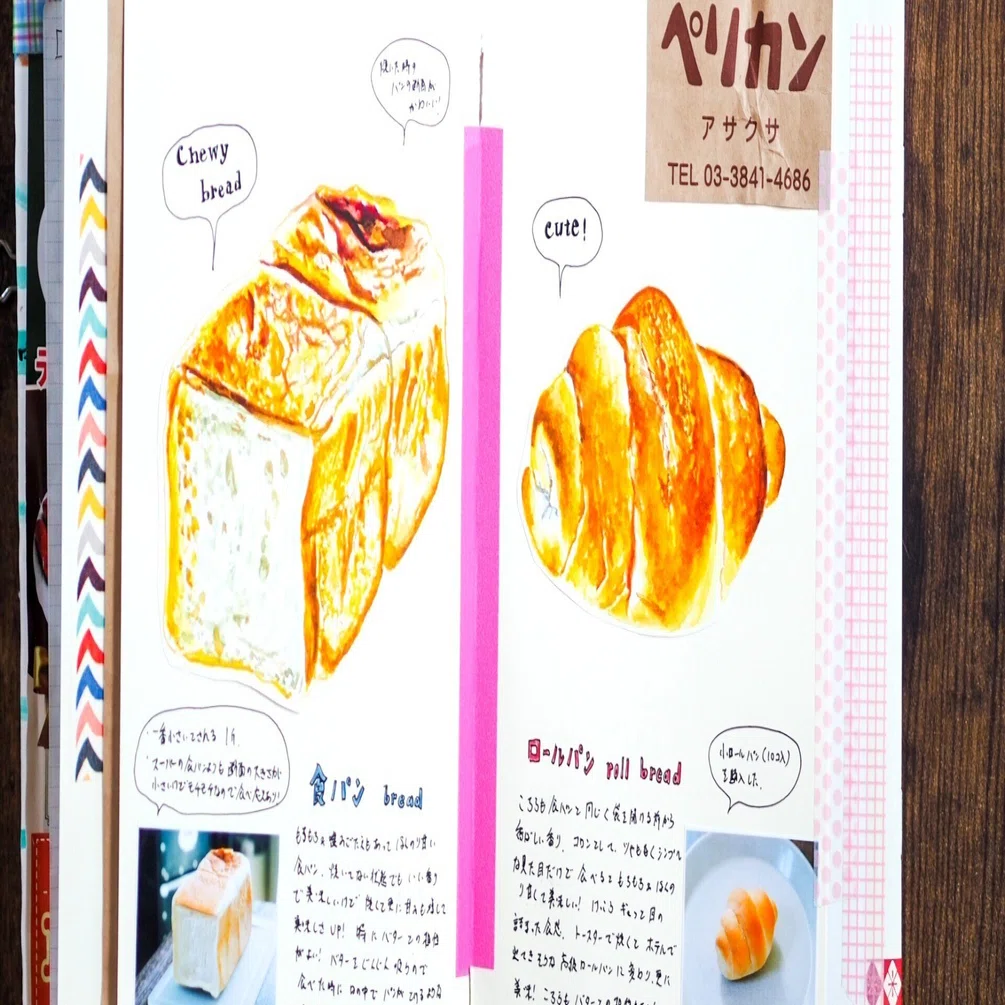 焼いた時の
パンの断面が
かわいい!
Chewy
bread
ペリカン
アサクサ
TEL 03-3841-4686
cute!
一番小さいサイズ
スーパーの食パンよりも断面の大きさが
小さいけどモチモチなので食べ応えあり!
食パン bread
もちもち 噛みごたえもあって ほんのり甘い
食パン。焼いてない状態でも いい香り
で美味しいけど 焼くと更に甘みも増して
美味しさ UP! 特に バターとの相性
がよい! バターをじんじん 吸うので
食べた時に 口の中で
ロールパン roll bread
小ロールパン(10コ入)
を購入した。
こちらも食パンと同じく袋を開ける前から
香ばしい香り。コロンとして、ツヤも良くシンプル
な見た目だけど 食べると もちもち ほんの
り甘くて美味しい! ぎゅっと目の
詰まった食感。トースターで焼くと ホテルで
出てきそうな 高級ロールパンに変わり、更に
美味! こちらも バターとの相性